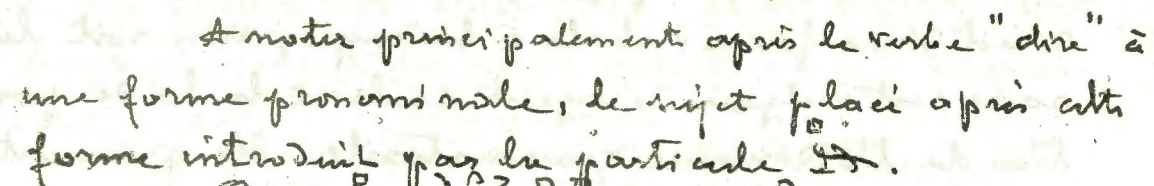 A noter principalement après le verbe "dire" à
une forme pronominale, le sujet placé après cette
forme introduit par la particule